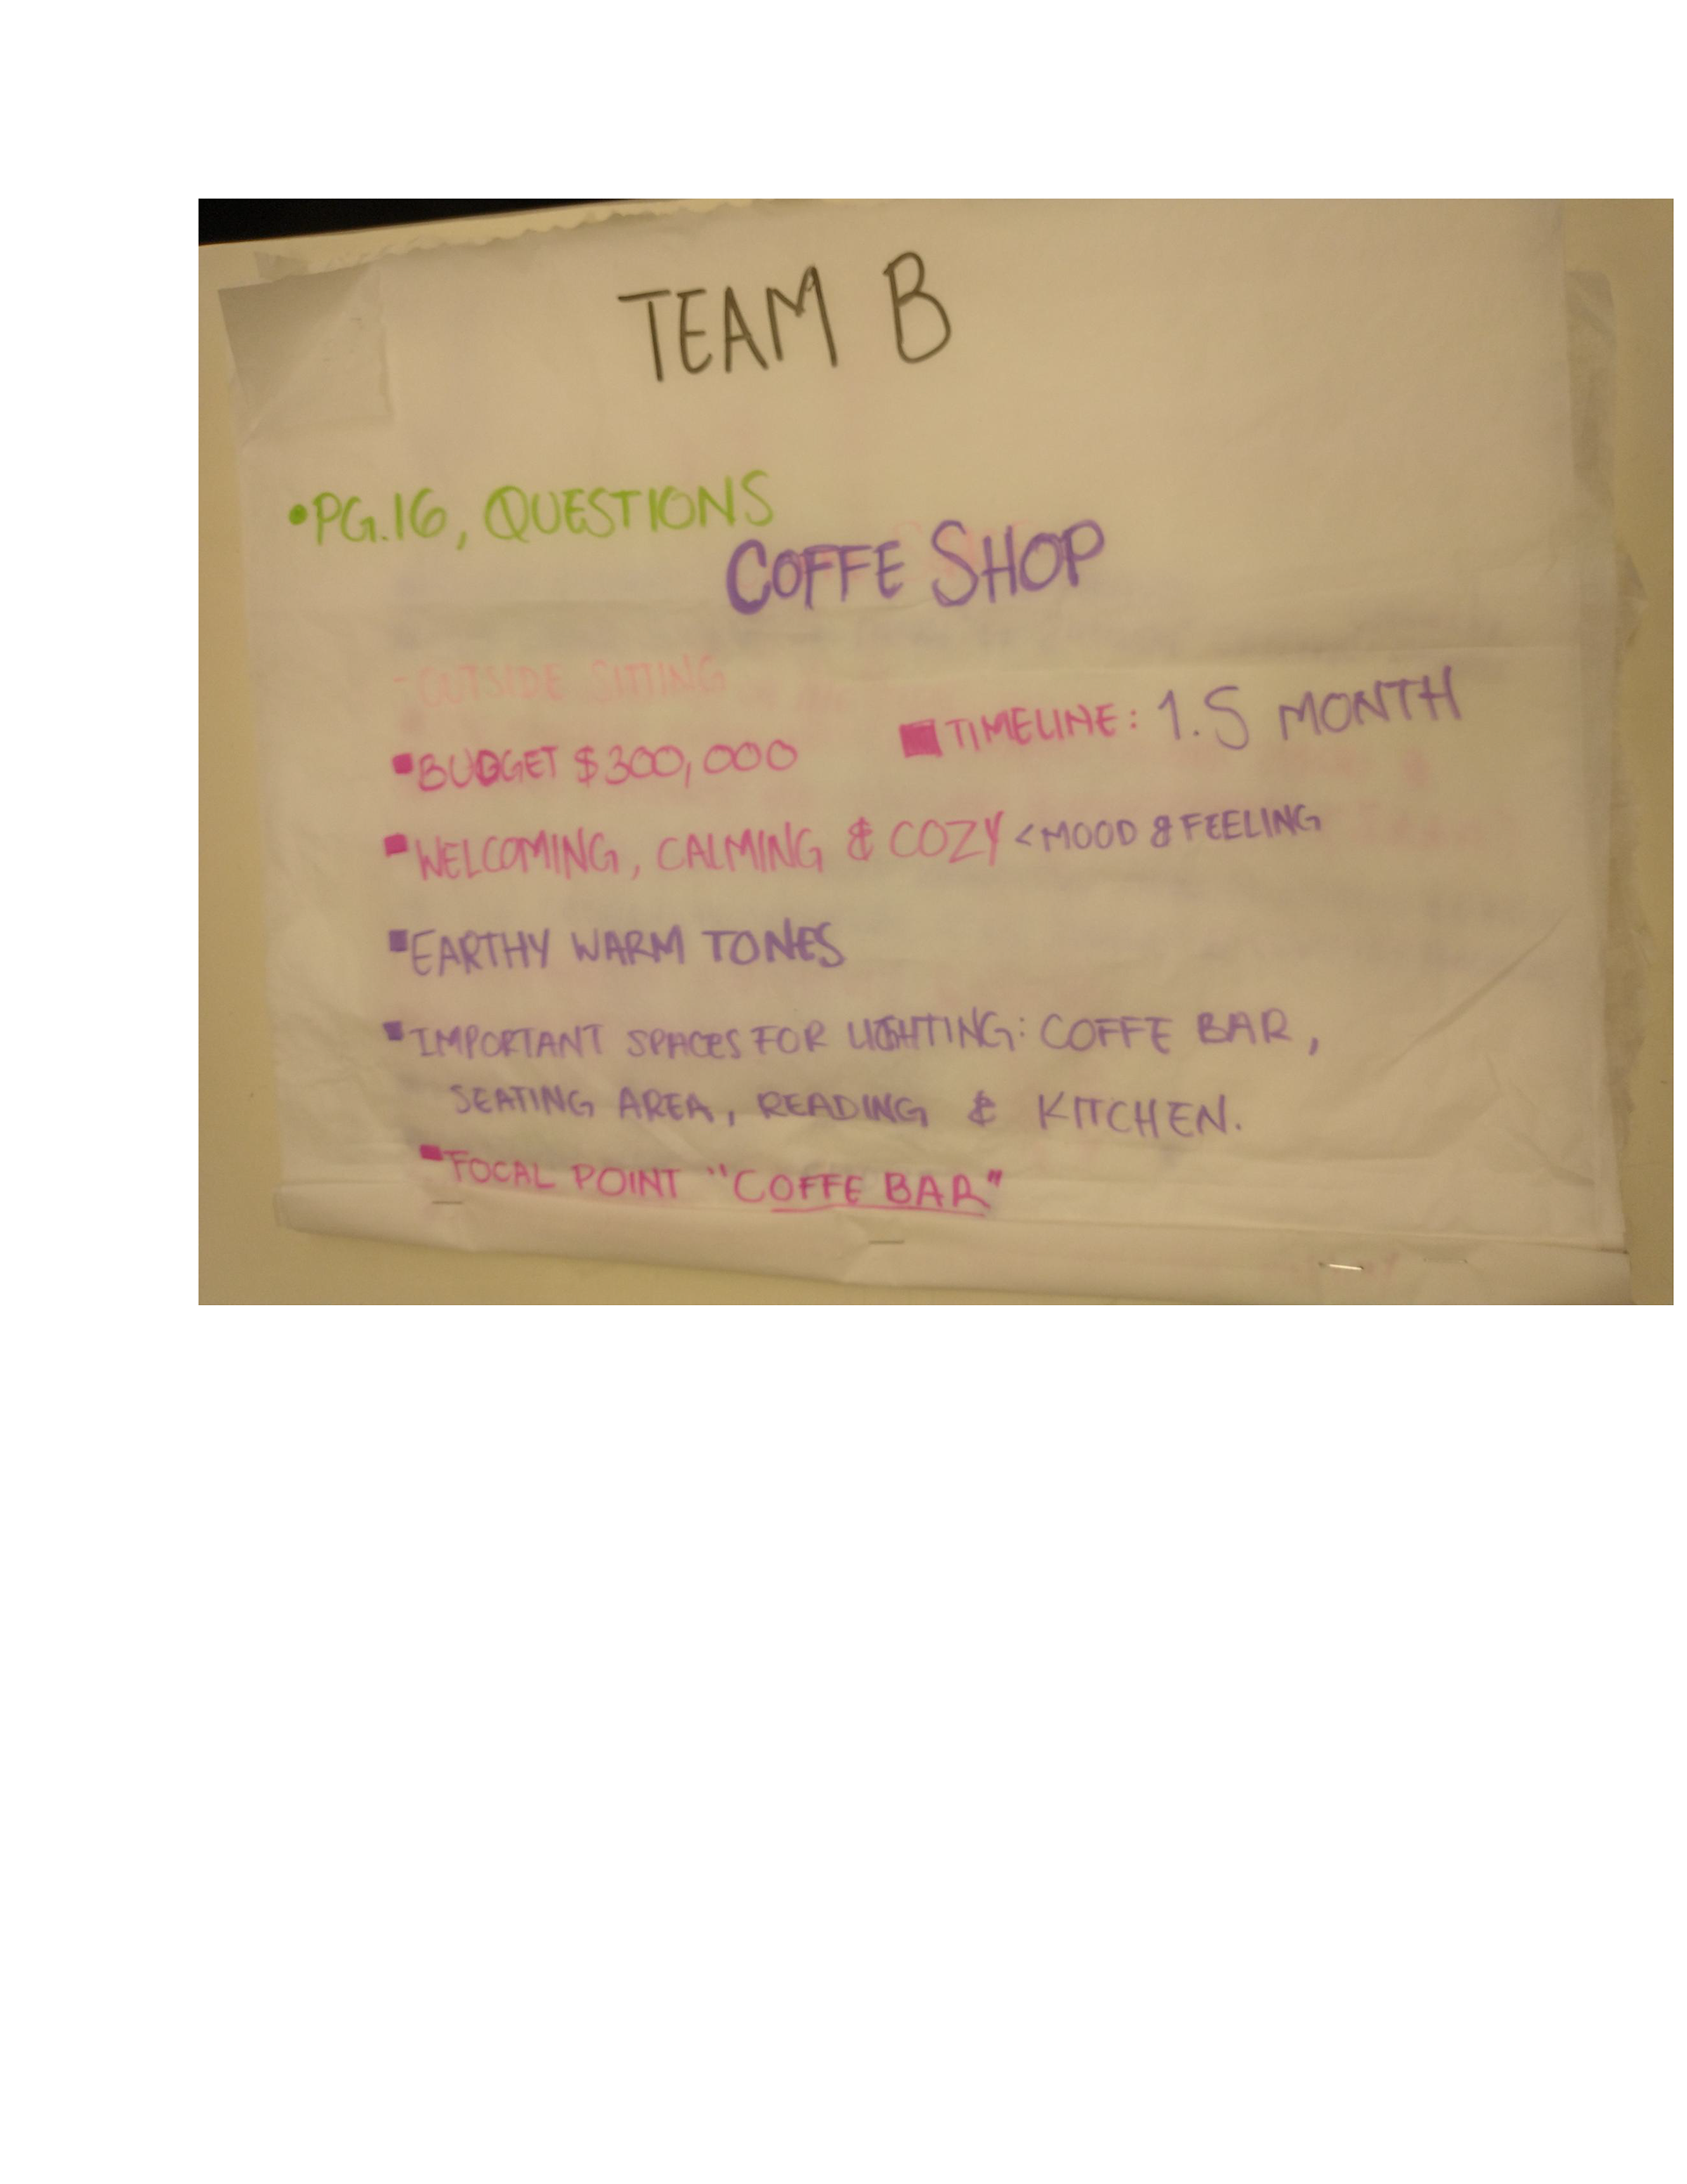 TEAM B
•PG.16, QUESTIONS
COFFE SHOP
-OUTSIDE SITTING
▪BUDGET $300,000
■TIMELINE: 1.5 MONTH
▪WELCOMING, CALMING & COZY <MOOD & FEELING
▪EARTHY WARM TONES
▪IMPORTANT SPACES FOR LIGHTING: COFFE BAR,
SEATING AREA, READING & KITCHEN.
▪FOCAL POINT "COFFE BAR"